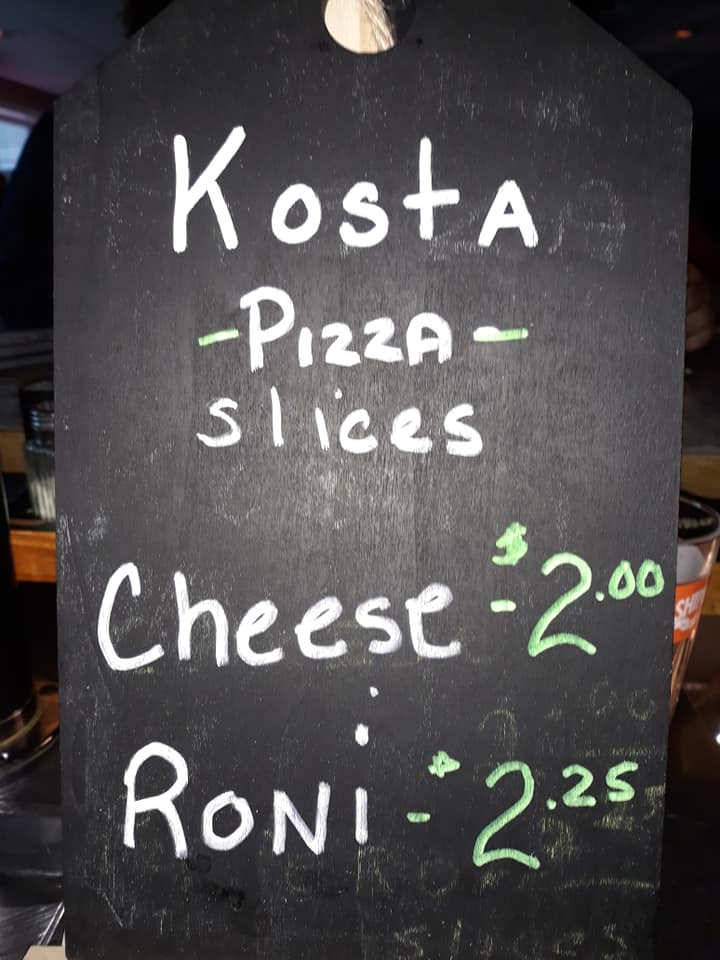 KostA
-PIZZA-
slices
Cheese -$2.00
RONI -$2.25